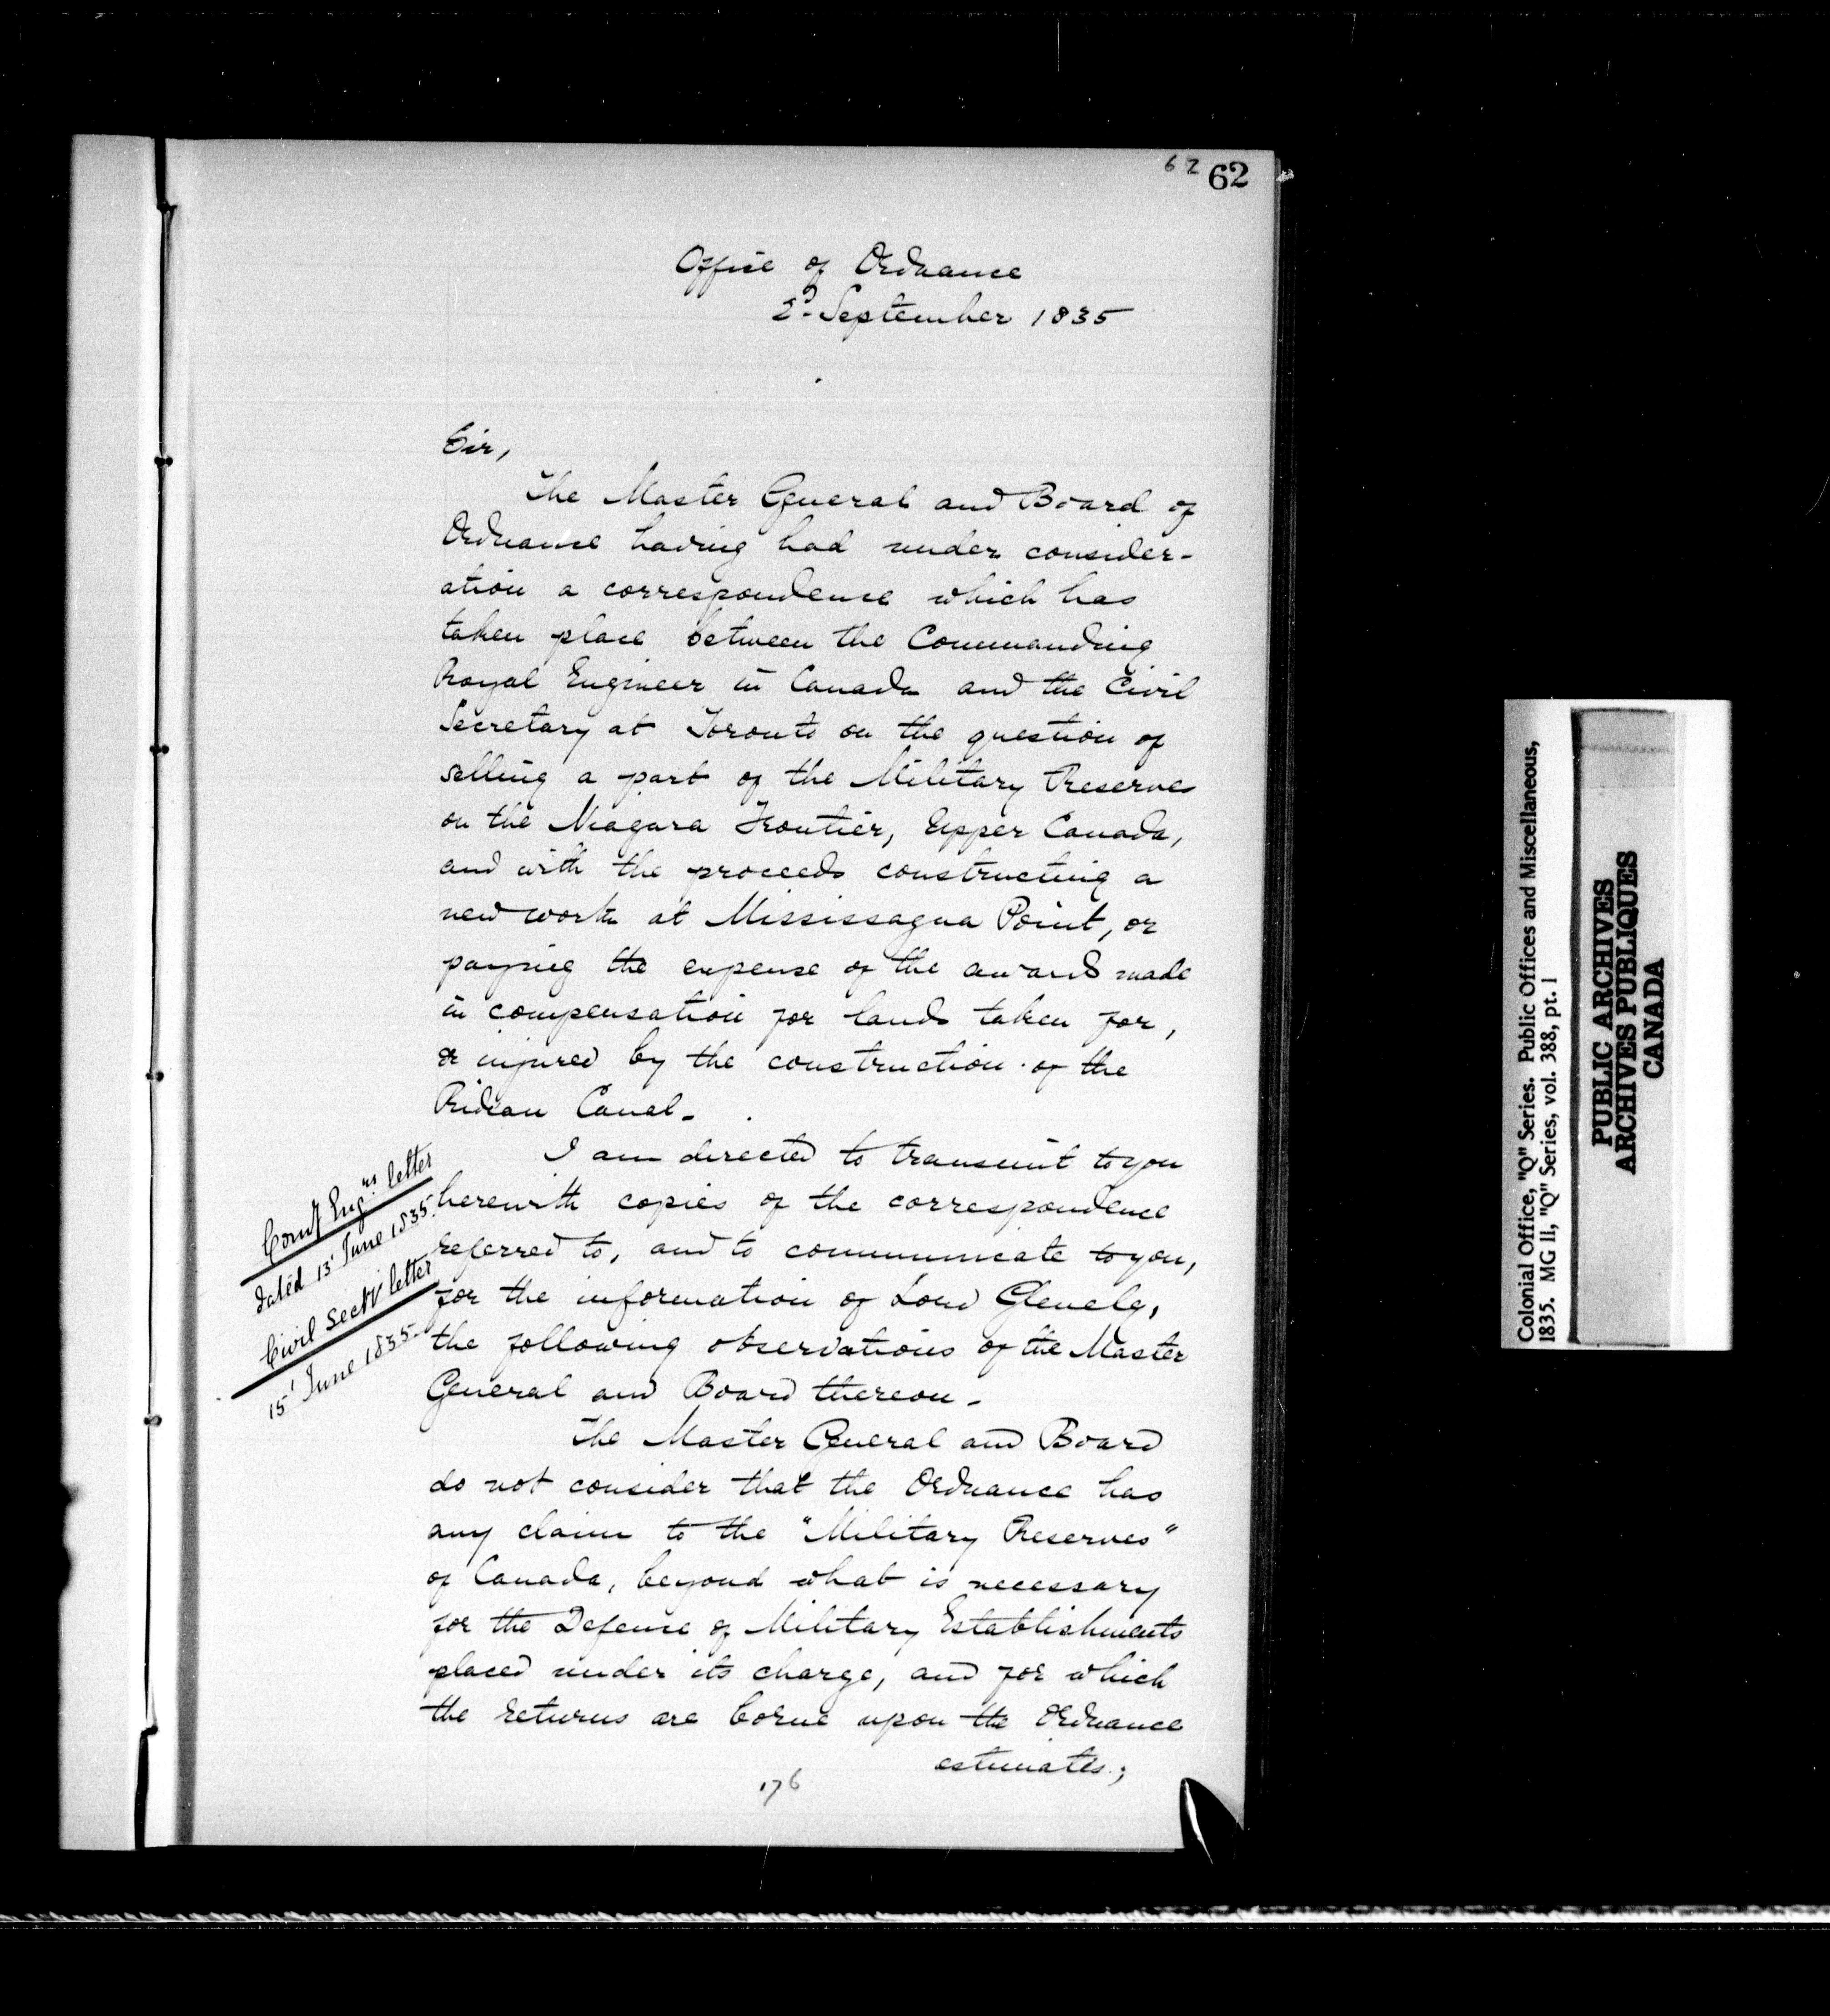 62 62
Office of Ordnance
2d September 1835
Sir,
The Master General and Board of
Ordnance having had under consider-
ation a correspondence which has
taken place between the Commanding
Royal Engineer in Canada and the Civil
Secretary at Toronto on the question of
selling a part of the Military Reserves
on the Niagara Frontier, Upper Canada,
and with the proceeds constructing a
new work at Mississagua Point, or
paying the expense of the awards made
in compensation for lands taken for,
or injured by the construction of the
Rideau Canal.
I am directed to transmit to you
herewith copies of the correspondence
referred to, and to communicate to you,
for the information of Lord Glenelg,
the following observations of the Master
General and Board thereon.
Comg Engrs letter
dated 13' June 1835.
Civil Secty letter
15' June 1835.
The Master General and Board
do not consider that the Ordnance has
any claim to the "Military Reserves"
of Canada, beyond what is necessary
for the Defence of Military Establishments
placed under its charge, and for which
the returns are borne upon the Ordnance
estimates;
176
Colonial Office, "Q" Series. Public Offices and Miscellaneous,
1835. MG 11, "Q" Series, vol. 388, pt. 1
PUBLIC ARCHIVES
ARCHIVES PUBLIQUES
CANADA